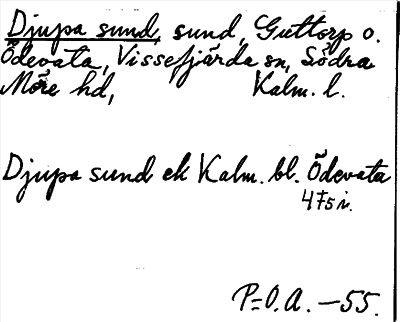 Djupa sund, sund, Guttorp o.
Ödevata, Vissefjärda sn, Södra
Möre hd, Kalm. l.
Djupa sund ek Kalm. bl. Ödevata
P=O.A. -55.